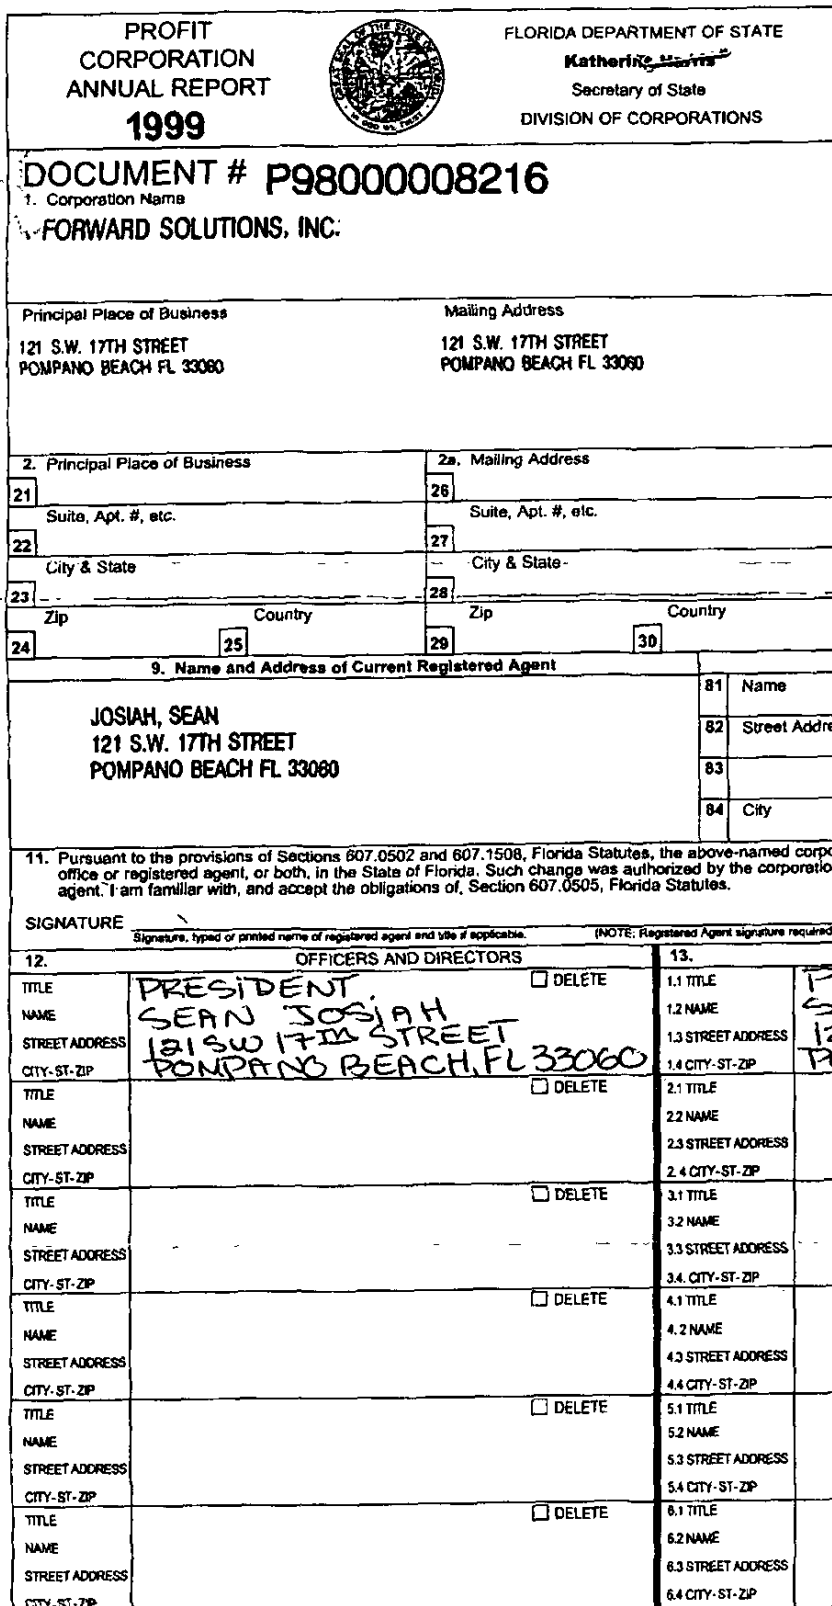 PROFIT
CORPORATION
ANNUAL REPORT
1999
FLORIDA DEPARTMENT OF STATE
Katherine Harris
Secretary of State
DIVISION OF CORPORATIONS
DOCUMENT # P98000008216
1. Corporation Name
FORWARD SOLUTIONS, INC.
Principal Place of Business
121 S.W. 17TH STREET
POMPANO BEACH FL 33060
Mailing Address
121 S.W. 17TH STREET
POMPANO BEACH FL 33060
2. Principal Place of Business
2a. Mailing Address
21
26
Suite, Apt. #, etc.
Suite, Apt. #, etc.
22
27
City & State
City & State
23
28
Zip
Country
Zip
Country
24
25
29
30
9. Name and Address of Current Registered Agent
JOSIAH, SEAN
121 S.W. 17TH STREET
POMPANO BEACH FL 33060
81 Name
82 Street Addre
83
84 City
11. Pursuant to the provisions of Sections 607.0502 and 607.1508, Florida Statutes, the above-named corpo
office or registered agent, or both, in the State of Florida. Such change was authorized by the corporatio
agent. I am familiar with, and accept the obligations of, Section 607.0505, Florida Statutes.
SIGNATURE
Signature, typed or printed name of registered agent and title if applicable.
(NOTE: Registered Agent signature required
12. OFFICERS AND DIRECTORS
13.
TITLE PRESIDENT. DELETE
NAME SEAN JOSIAH
STREET ADDRESS 121 SW 17TH STREET
CITY-ST-ZIP POMPANO BEACH, FL 33060
1.1 TITLE P
1.2 NAME S
1.3 STREET ADDRESS 12
1.4 CITY-ST-ZIP PO
TITLE DELETE
NAME
STREET ADDRESS
CITY-ST-ZIP
2.1 TITLE
2.2 NAME
2.3 STREET ADDRESS
2.4 CITY-ST-ZIP
TITLE DELETE
NAME
STREET ADDRESS
CITY-ST-ZIP
3.1 TITLE
3.2 NAME
3.3 STREET ADDRESS
3.4. CITY-ST-ZIP
TITLE DELETE
NAME
STREET ADDRESS
CITY-ST-ZIP
4.1 TITLE
4.2 NAME
4.3 STREET ADDRESS
4.4 CITY-ST-ZIP
TITLE DELETE
NAME
STREET ADDRESS
CITY-ST-ZIP
5.1 TITLE
5.2 NAME
5.3 STREET ADDRESS
5.4 CITY-ST-ZIP
TITLE DELETE
NAME
STREET ADDRESS
CITY-ST-ZIP
6.1 TITLE
6.2 NAME
6.3 STREET ADDRESS
6.4 CITY-ST-ZIP